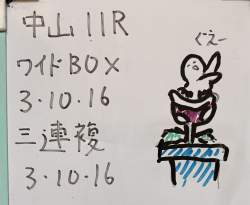 中山11R
ワイドBOX
3・10・16
三連複
3・10・16
ぐえー